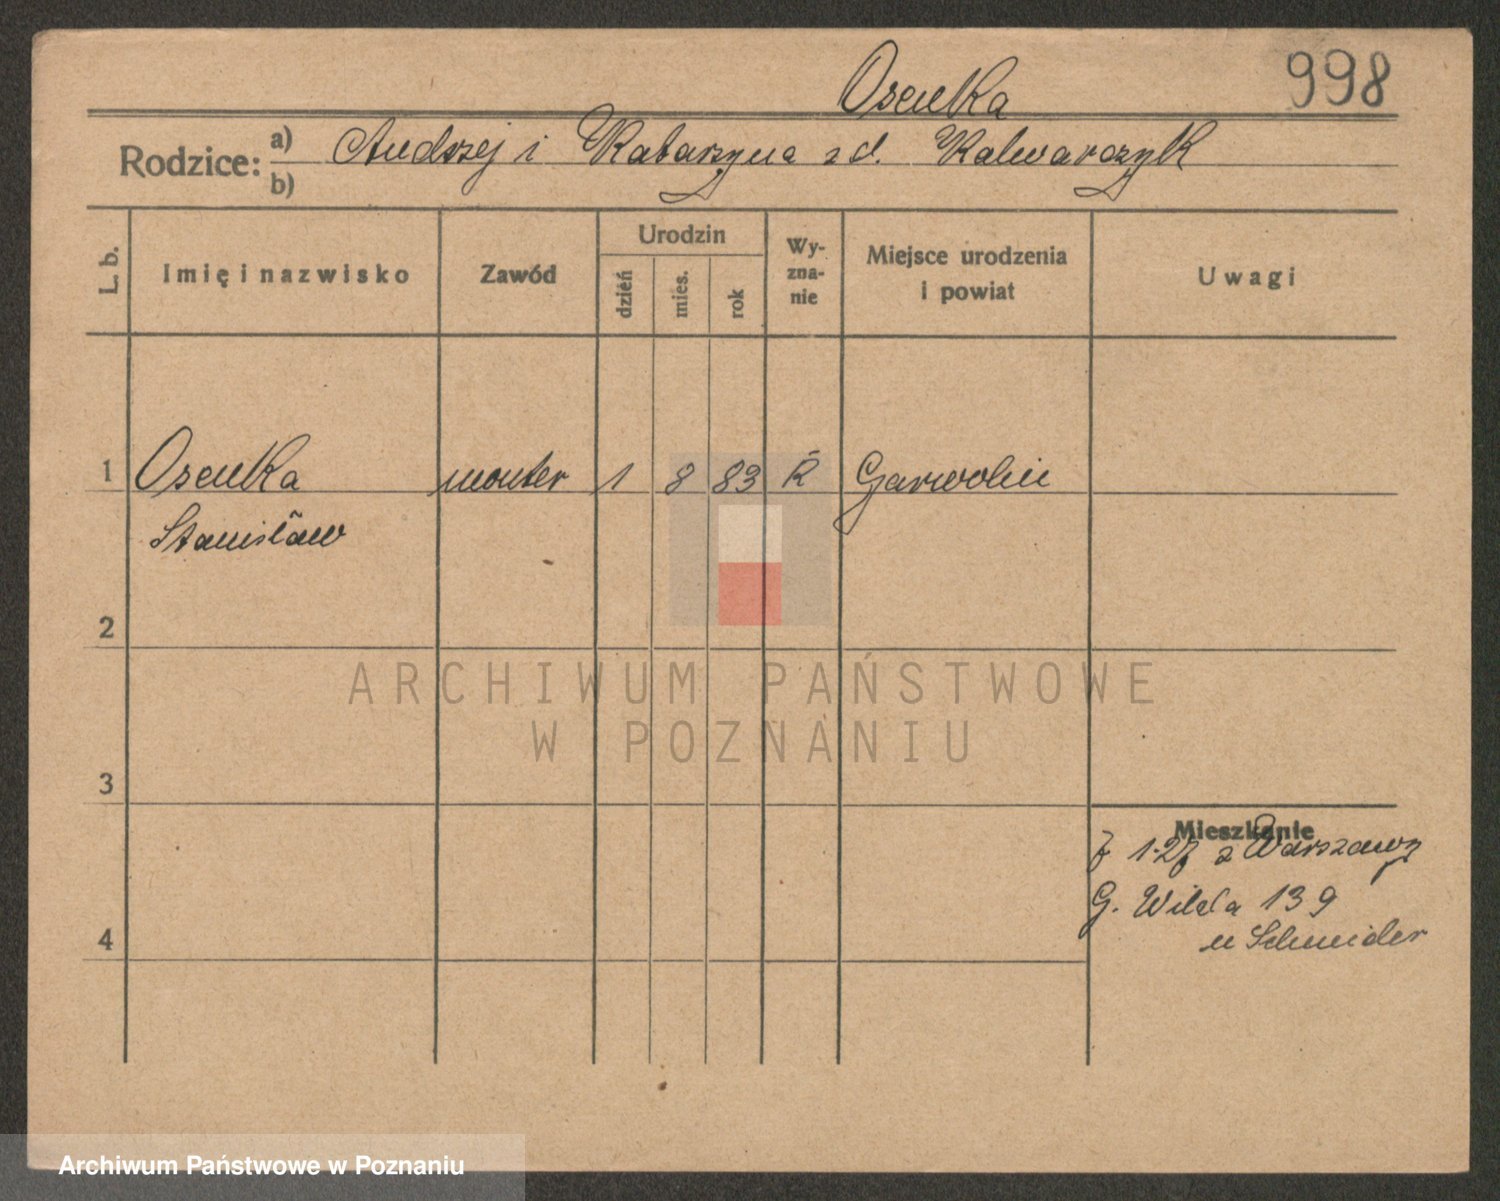 998
Osculka
Rodzice: a) Andrzej i Katarzyna z d. Kalwarczyk
b)
L. b.
Imię i nazwisko
Zawód
Urodzin
dzień
mies.
rok
Wy-
zna-
nie
Miejsce urodzenia
i powiat
Uwagi
1 Osculka monter 1 8 83 R Garwolin
Stanisław
2
3
4
Mieszkanie
7 1.27 z Warszawy
G. Wilda 139
u Schneider
ARCHIWUM PAŃSTWOWE
W POZNANIU
Archiwum Państwowe w Poznaniu